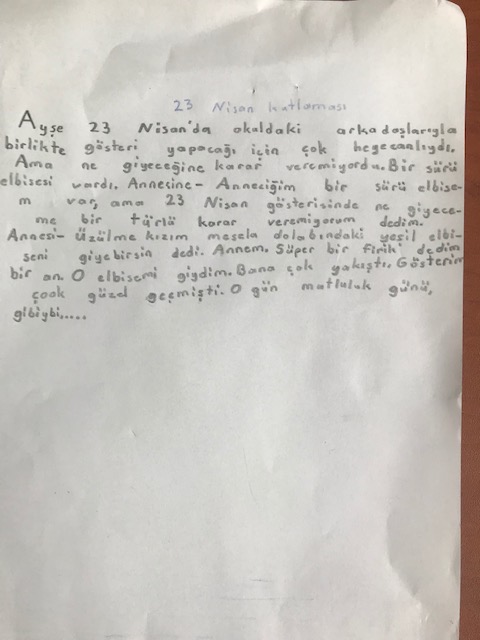 23 Nisan kutlaması
Ayşe 23 Nisan'da okuldaki arkadaşlarıyla
birlikte gösteri yapacağı için çok heyecanlıydı.
Ama ne giyeceğine karar veremiyordu. Bir sürü
elbisesi vardı. Annecine- Anneciğim bir sürü elbise-
m var, ama 23 Nisan gösterisinde ne giyece-
me bir türlü karar veremiyorum dedim.
Annesi- Üzülme kızım mesela dolabındaki yeşil elbi-
seni giyebirsin dedi. Annem, Süper bir firik dedim
bir an. O elbisemi giydim. Bana çok yakıştı. Gösterim
çook güzel geçmişti. O gün mutluluk günü,
gibiybi.....